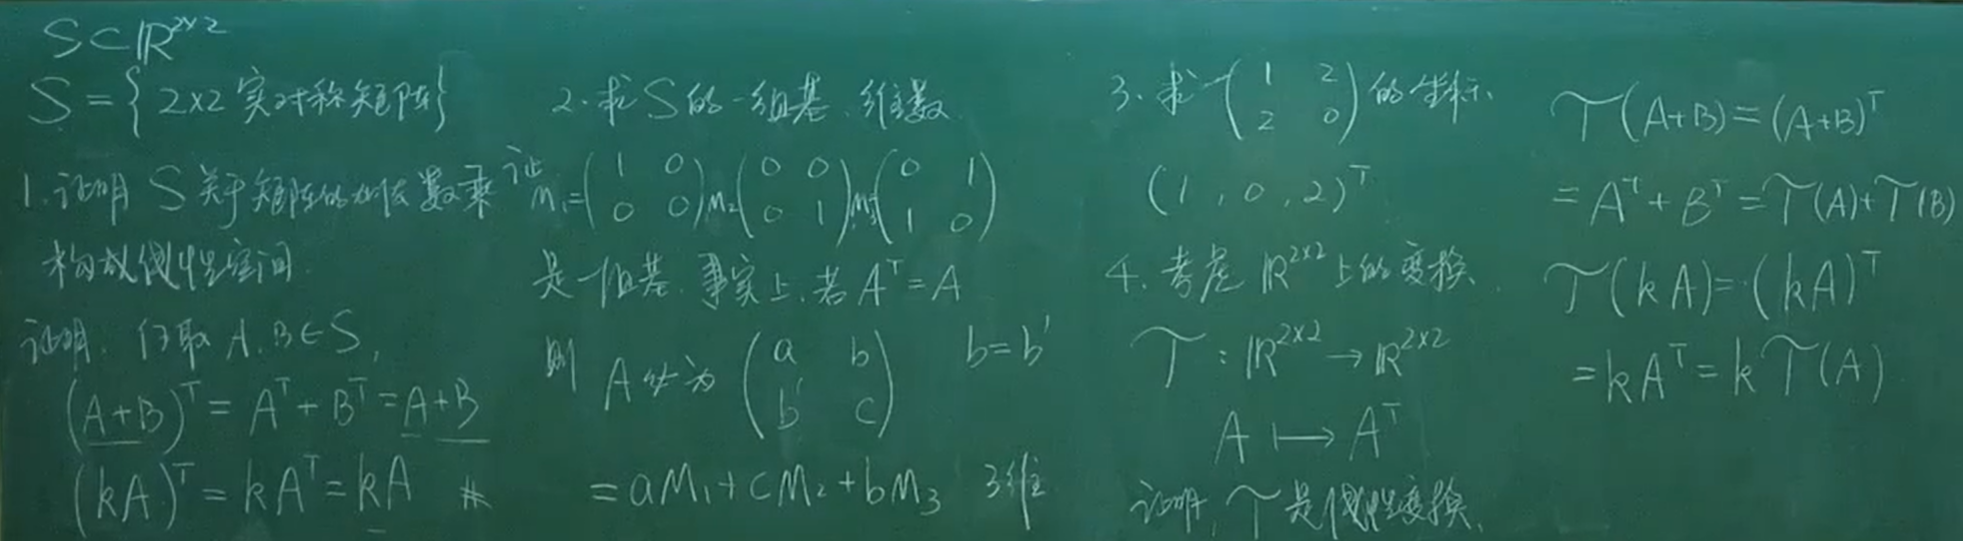 S⊂ℝ^{2×2}
S={2×2实对称矩阵}
1.证明 S关于矩阵的加法数乘
构成线性空间.
证明. 任取A,B∈S,
(A+B)^T=A^T+B^T=A+B
(kA)^T=kA^T=kA #
2.求S的一组基、维数
证 M₁=(1 0; 0 0), M₂(0 0; 0 1), M₃(0 1; 1 0)
是一组基.事实上,若A^T=A
则 A必为 (a b; b' c) b=b'
=aM₁+cM₂+bM₃ 3维
3.求(1 2; 2 0)的坐标、
(1,0,2)^T
4.考虑ℝ^{2×2}上的变换
T:ℝ^{2×2}→ℝ^{2×2}
A↦A^T
证明,T是线性变换、
T(A+B)=(A+B)^T
=A^T+B^T=T(A)+T(B)
T(kA)=(kA)^T
=kA^T=kT(A)